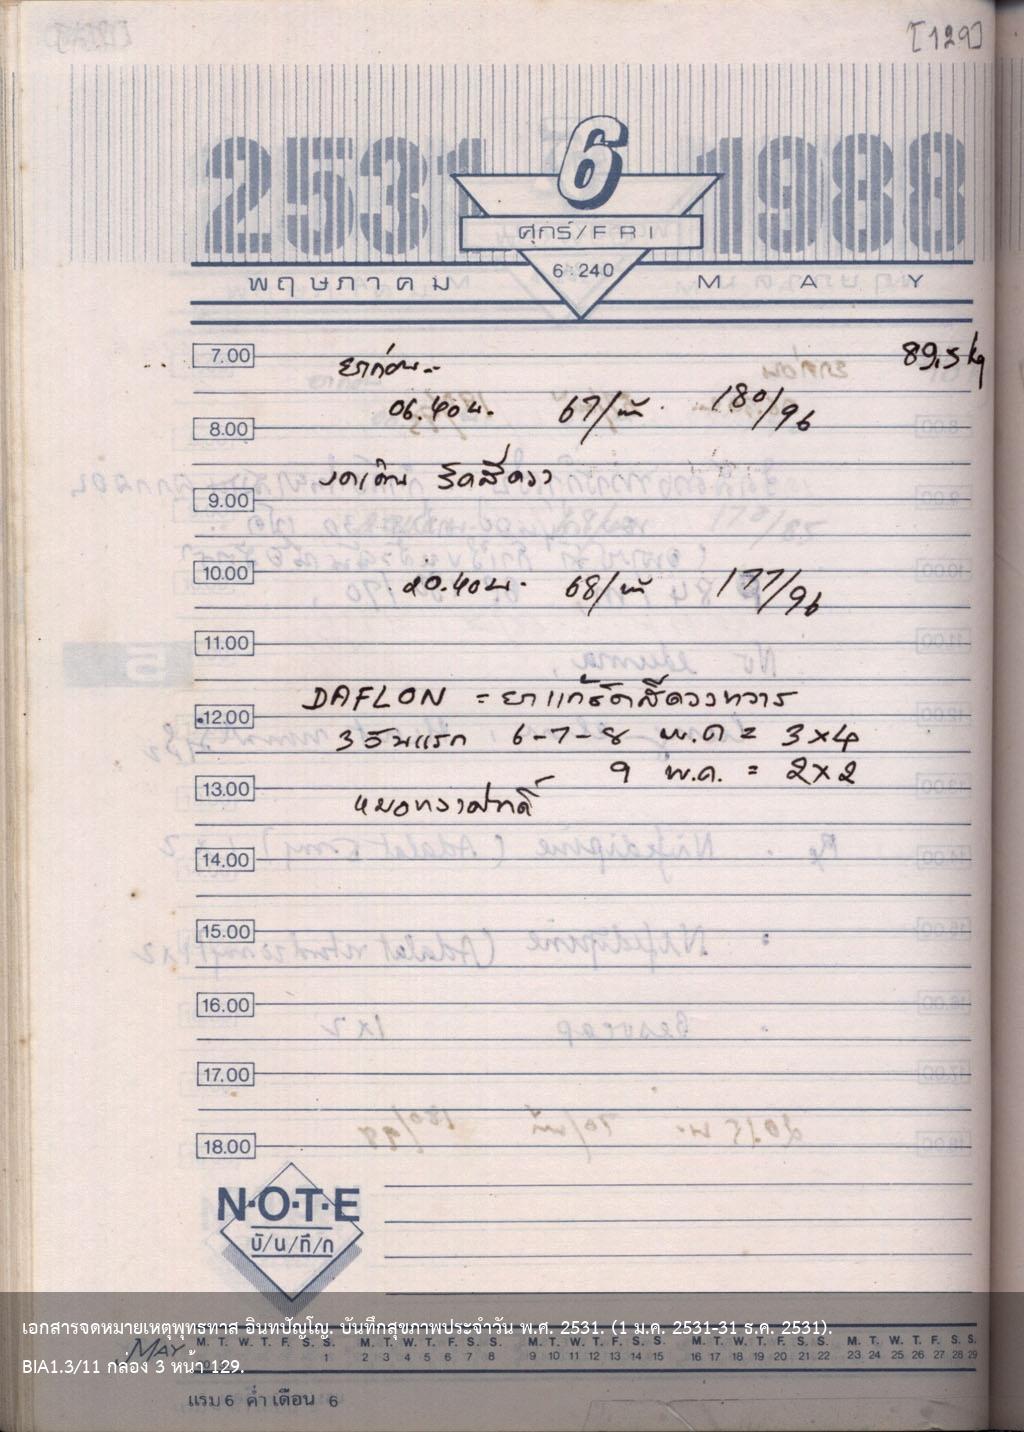 [129]
2531 6 1988
ศุกร์/FRI
6:240
พฤษภาคม MAY
7.00 ยาก่อน 89.5 kg
06.40 น. 67/นาที 180/96
8.00
งดเดิน ริดสีดวง
9.00
10.00
20.40 น. 68/นาที 177/96
11.00
DAFLON = ยาแก้ริดสีดวงทวาร
12.00
3 วันแรก 6-7-8 พ.ค = 3x4
9 พ.ค. = 2x2
13.00
14.00
15.00
16.00
17.00
18.00
N·O·T·E
บั/น/ทึ/ก
เอกสารจดหมายเหตุพุทธทาส อินทปัญโญ. บันทึกสุขภาพประจำวัน พ.ศ. 2531. (1 ม.ค. 2531-31 ธ.ค. 2531).
MAY M. T. W. T. F. S. S. M. T. W. T. F. S. S. M. T. W. T. F. S. S. M. T. W. T. F. S. S. M. T. W. T. F. S. S.
1 2 3 4 5 6 7 8 9 10 11 12 13 14 15 16 17 18 19 20 21 22 23 24 25 26 27 28 29
BIA1.3/11 กล่อง 3 หน้า 129.
แรม 6 ค่ำ เดือน 6